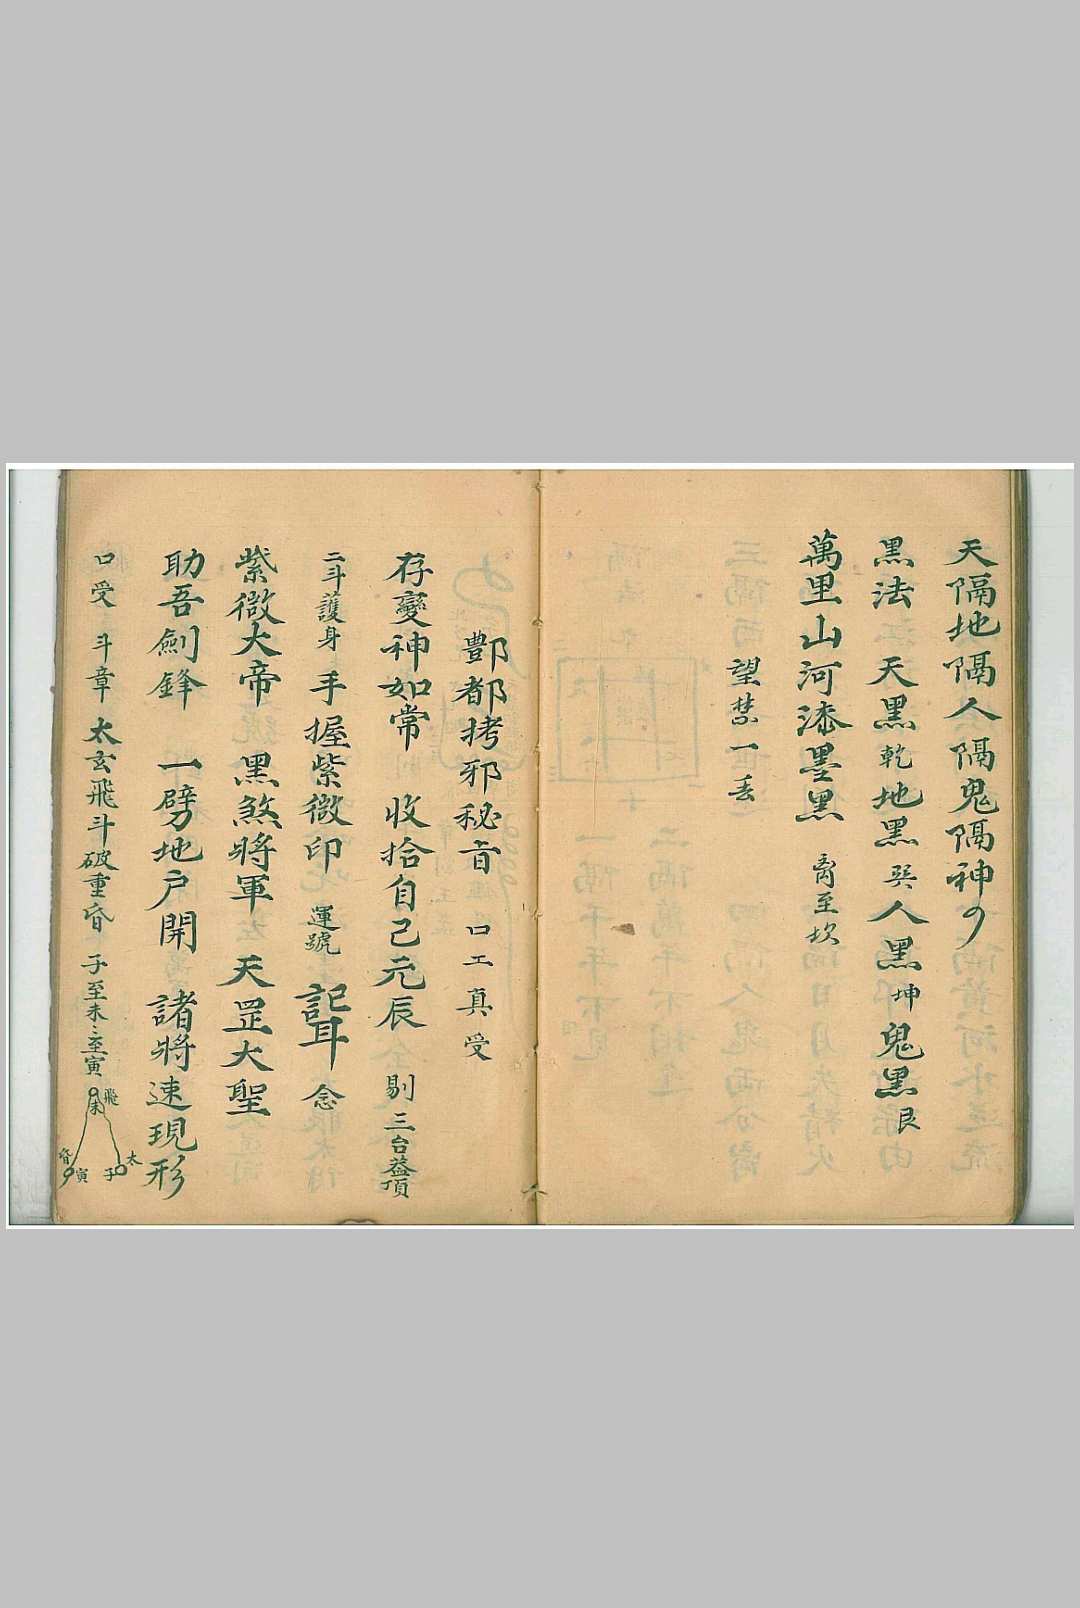 天隔地隔人隔鬼隔神
黑法 天黑乾地黑巽人黑坤鬼黑艮
萬里山河漆墨黑 离至坎
望禁一丢
酆都拷邪秘旨 口工真受
存變神如常 收拾自己元辰 剔三台益頂
二斗護身 手握紫微印 運號 記耳 念
紫微大帝 黑煞將軍 天罡大聖
助吾劍鋒 一劈地户開 諸將速現形
口受 斗章 太玄飛斗破重昏 子至未〻至寅
飛 未
太 子 寅 昏